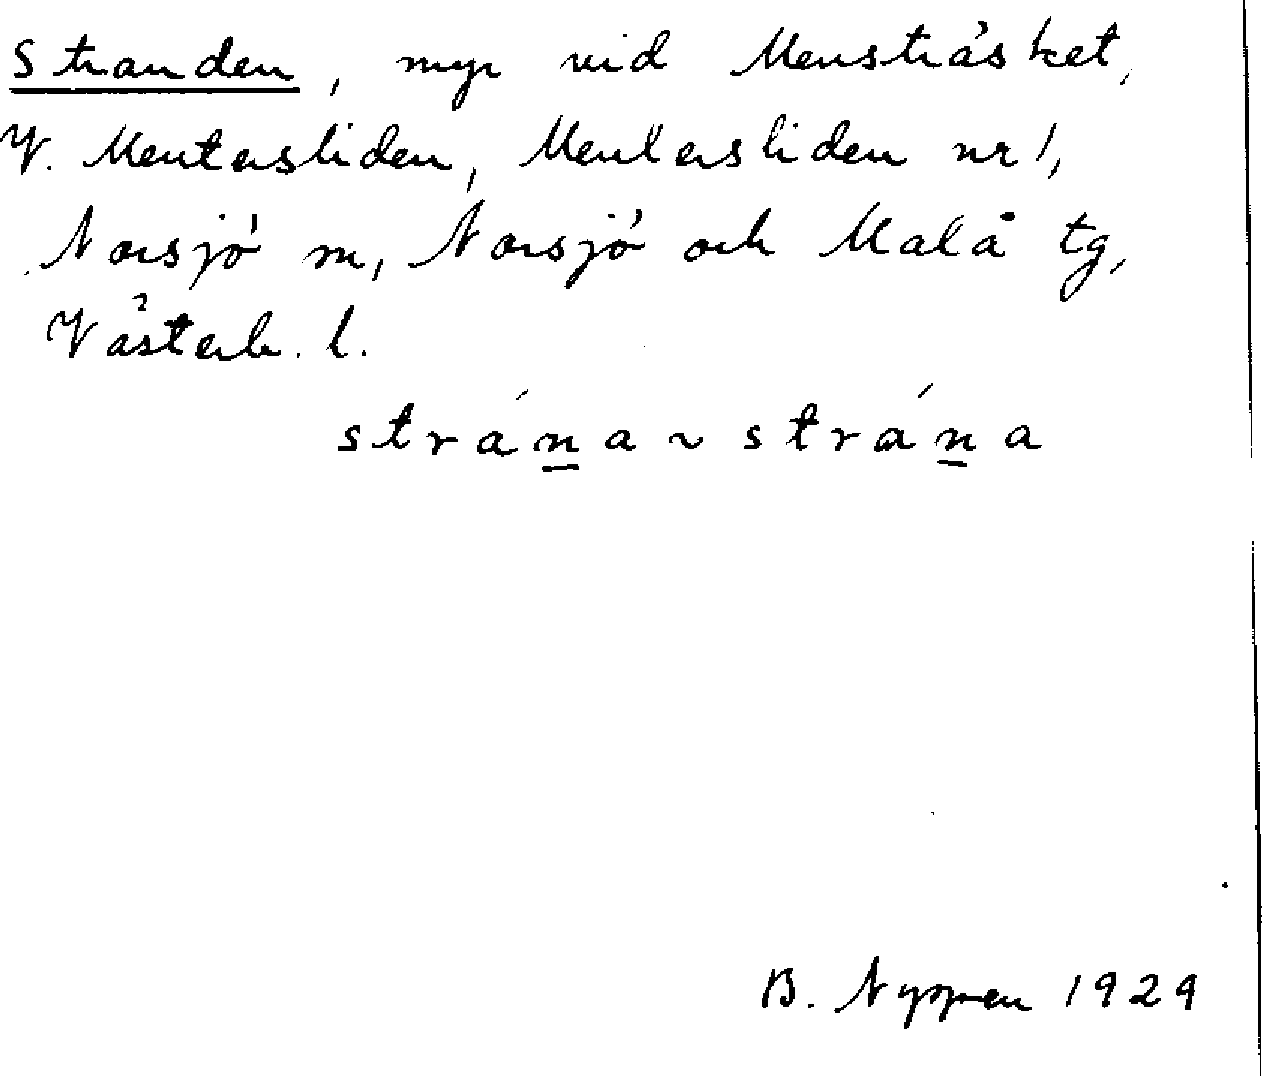 Stranden, myr vid Mensträsket,
V. Mentersliden, Mentersliden nr 1,
Norsjö sn, Norsjö och Malå tg,
Västerb. l.
strána ~ strána
B. Nyppen 1929